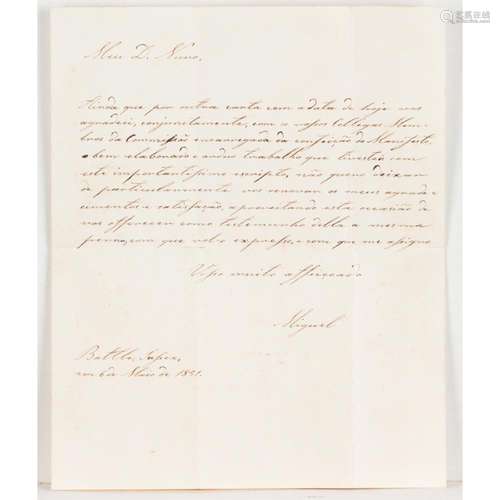 Meu D. Nuno,
Ainda que por outra carta com a data de hoje vos
agradeci, conjuntamente, com os vossos Collegas Mem-
bros da Commissão encarregada da confeição do Manifesto,
o bem elaborado e arduo trabalho que tivestes com
este importantissimo escripto, não quero deixar
de particularmente vos renovar os meus agrade-
cimentos e satisfação, aproveitando esta occasião de
vos offerecer como testemunho della a mesma
penna, com que vol-o expresso, e com que me assigno
Vosso muito affeiçoado
Miguel
Battle,
em 6 de de 1851.